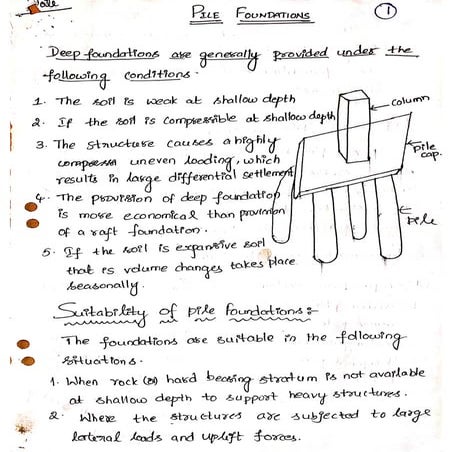 Date
PILE FOUNDATIONS
1
Deep foundations are generally provided under the
following conditions.
1. The soil is weak at shallow depth
2. If the soil is compressible at shallow depth
column
3. The structure causes a highly
uneven loading, which
results in large differential settlement
pile
cap.
4. The provision of deep foundation
is more economical than provision
of a raft foundation.
pile
5. If the soil is expansive soil
that is volume changes takes place
seasonally.
Suitability of pile foundations:-
The foundations are suitable in the following
situations.
1. When rock (or) hard bearing stratum is not available
at shallow depth to support heavy structures.
2. Where the structures are subjected to large
lateral loads and uplift forces.